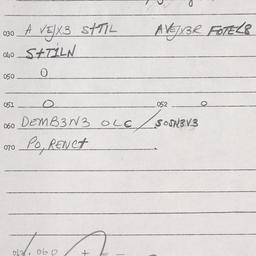 030 A VEJX3 S+TIL AVEJV3R FOTEL8
040 S+TILN
050 0
051 0 052 0
060 DEMB3N3 OLC / SOSN3V3
070 PO, RENC+